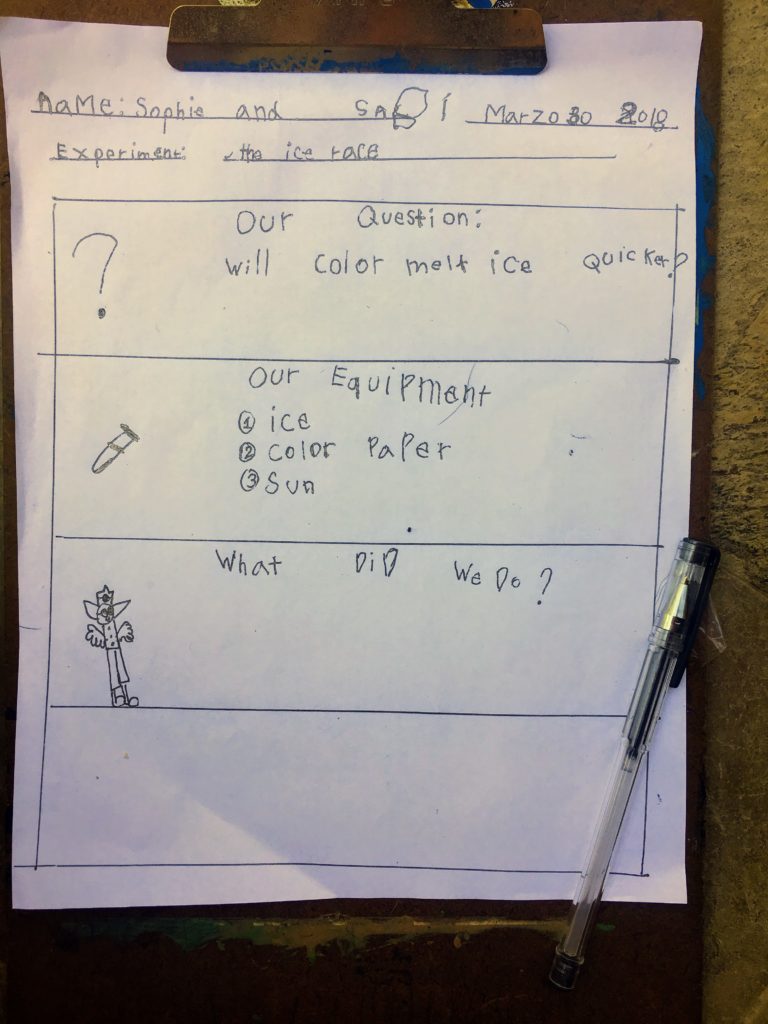 NaME: Sophie and Marzo 30 2018
Experiment: the ice race
Our Question:
?
will color melt ice quicker?
Our Equipment
① ice
② color paper
③ Sun
What DiD We Do?